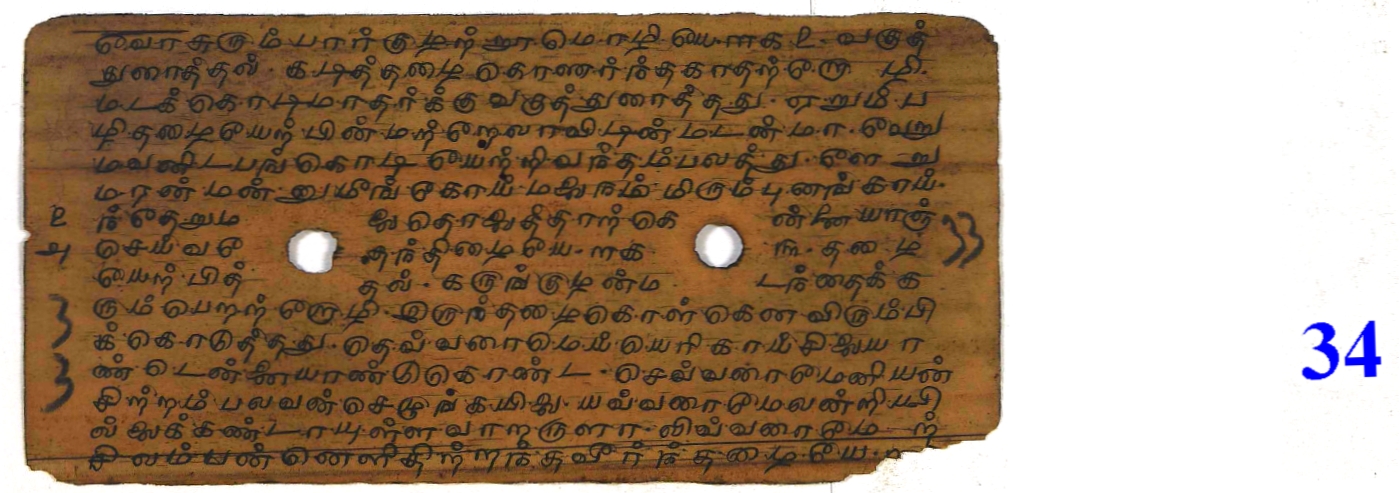 வோசுரும் பார்குழற் றூமொழியே.ளகஉ. வகுத்
துரைத்தல். கடித்தழை கொணர்ந்தகாதற்றோழி.
மடக்கொடிமாதர்க்கு வகுத்துரைத்தது. ஏறும்ப
ழிதழையேயற்பின்மற்றேலாவிடின்மடன்மா. வேறு
மவனிடபங்கொடியேற்றிவந்தம்பலத்து. ளேறு
மரன்மன்னுமீங்கோய்மலைநம்மிரும்புனங்காய்.
உ ந்தேறும லைதொலைத்தாற்கெ ன்னையாஞ்
அ செய்வதே தந்திழையே.ளக ௩. தழை 33
யேற்பித் தல். கருங்குழன்ம டந்தைக்க
33 ரும்பெறற்றோழி. இருந்தழைகொள்கெனவிரும்பி
க்கொடுத்தது. தெவ்வரைமெய்யெரிகாய்சிலையா
ண்டென்னையாண்டுகொண்ட. செவ்வரைமேனியன்
சிற்றம்பலவன்செழுங்கயிலை. யவ்வரைமேலன்றியி
ல்லைக்கண்டாயுள்ளவாறருளா. லிவ்வரைமேற்
சிலம்பனெளிதிற்றந்தவீர்ந்தழையே.ள
34